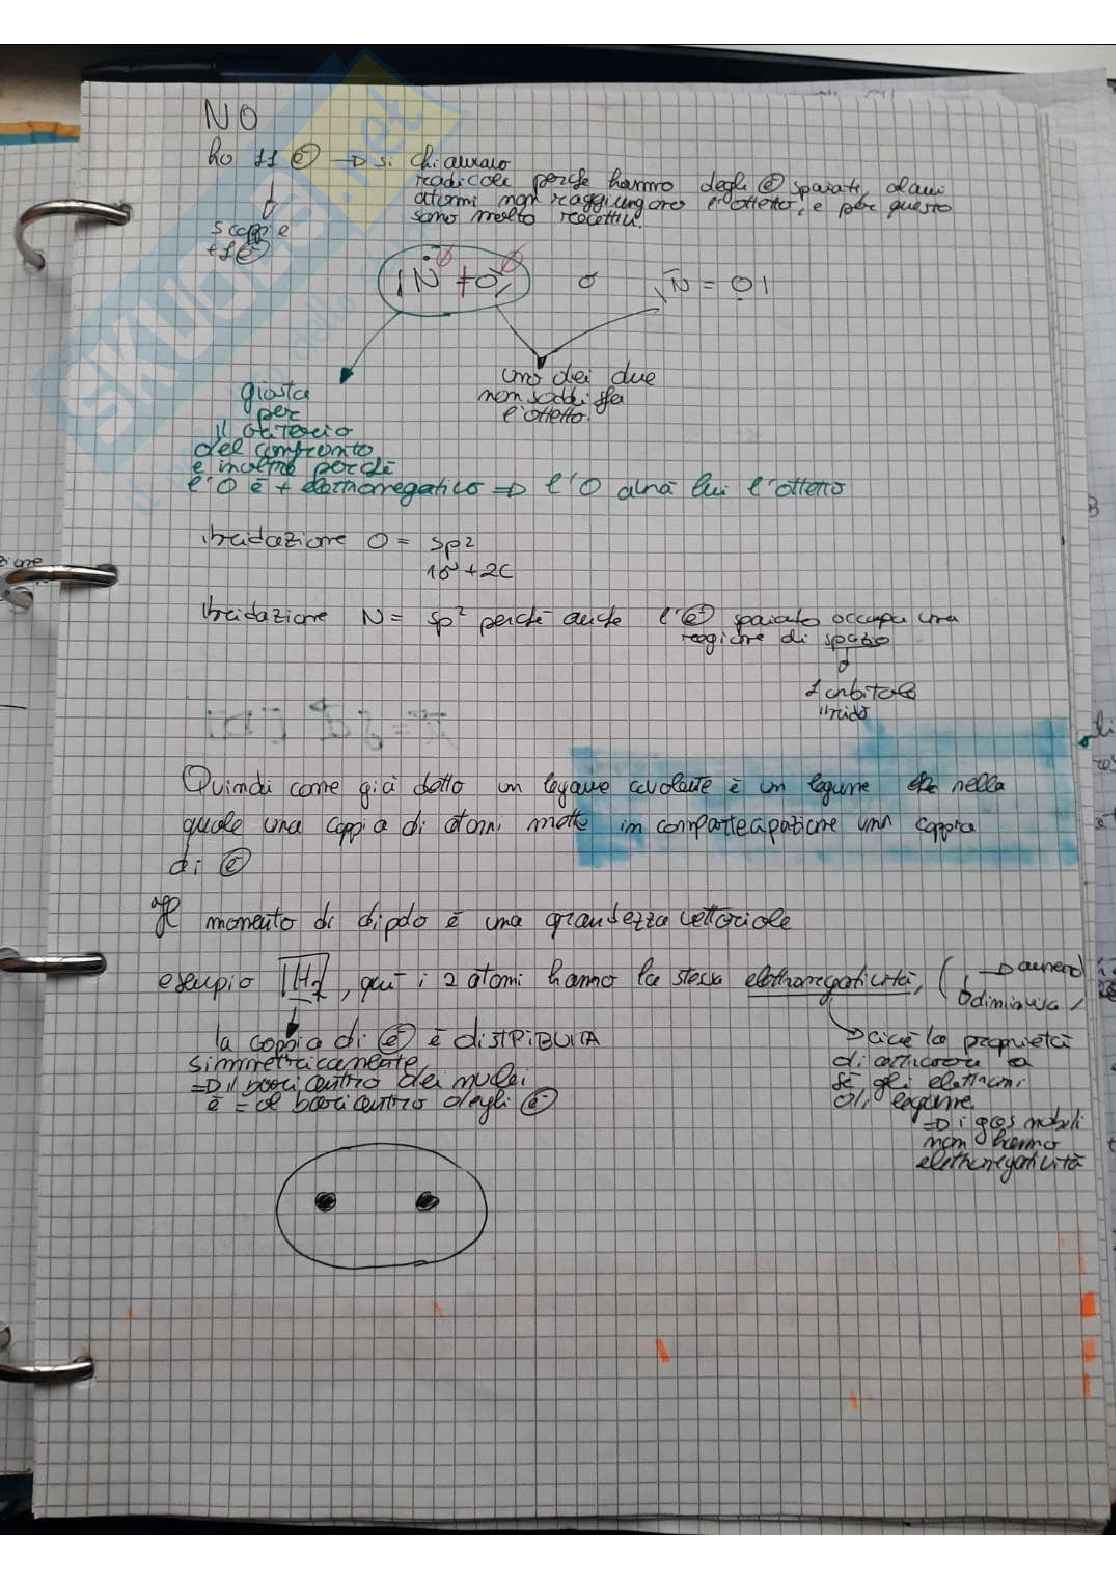 NO
ho 11 e⁻ → si chiamano
radicali perché hanno degli e⁻ spaiati, alcuni
atomi non raggiungono l'ottetto, e per questo
sono molto reattivi.
5 coppie
+1 e⁻
N O o N = O
uno dei due
non soddisfa
l'ottetto.
giusta
per
il criterio
del confronto
e inoltre perché
l'O è + elettronegativo ⇒ l'O avrà lui l'ottetto
ibridazione O = sp²
1σ + 2C
ibridazione N = sp² perché anche l'e⁻ spaiato occupa una
regione di spazio
1 orbitale
ibrido
Quindi come già detto un legame covalente è un legame nella
quale una coppia di atomi mette in compartecipazione una coppia
di e⁻
Il momento di dipolo è una grandezza vettoriale
esempio H₂, qui i 2 atomi hanno la stessa elettronegatività, ( → aumenta
diminuisce
la coppia di e⁻ è DISTRIBUITA
simmetricamente
⇒ il baricentro dei nuclei
è = al baricentro degli e⁻
cioè la proprietà
di attirare a
sé, gli elettroni
di legame.
⇒ i gas nobili
non hanno
elettronegatività
SKUOLA.net